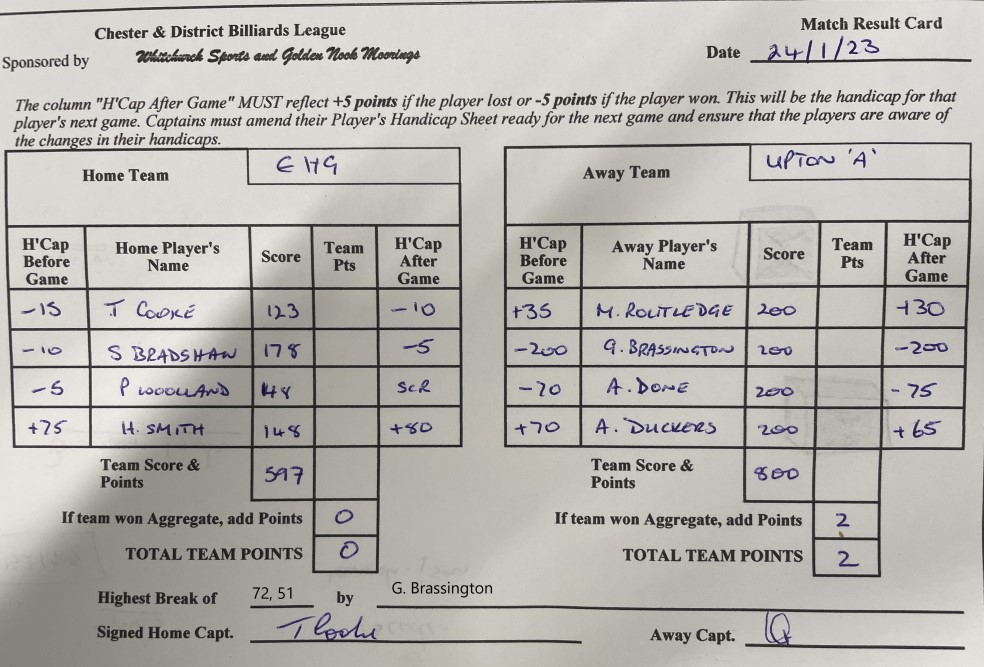 Chester & District Billiards League
Match Result Card
Sponsored by Whitchurch Sports and Golden Nook Moorings
Date 24/1/23
The column "H'Cap After Game" MUST reflect +5 points if the player lost or -5 points if the player won. This will be the handicap for that
player's next game. Captains must amend their Player's Handicap Sheet ready for the next game and ensure that the players are aware of
the changes in their handicaps.
Home Team EHG
H'Cap Before Game Home Player's Name Score Team Pts H'Cap After Game
-15 T COOKE 123 -10
-10 S BRADSHAW 178 -5
-5 P WOOLLAND 48 SCR
+75 H. SMITH 148 +80
Team Score & Points 597
If team won Aggregate, add Points 0
TOTAL TEAM POINTS 0
Away Team UPTON 'A'
H'Cap Before Game Away Player's Name Score Team Pts H'Cap After Game
+35 M. ROUTLEDGE 200 +30
-200 G. BRASSINGTON 200 -200
-70 A. DONE 200 -75
+70 A. DUCKERS 200 +65
Team Score & Points 800
If team won Aggregate, add Points 2
TOTAL TEAM POINTS 2
Highest Break of 72, 51 by G. Brassington
Signed Home Capt. T Cooke
Away Capt.